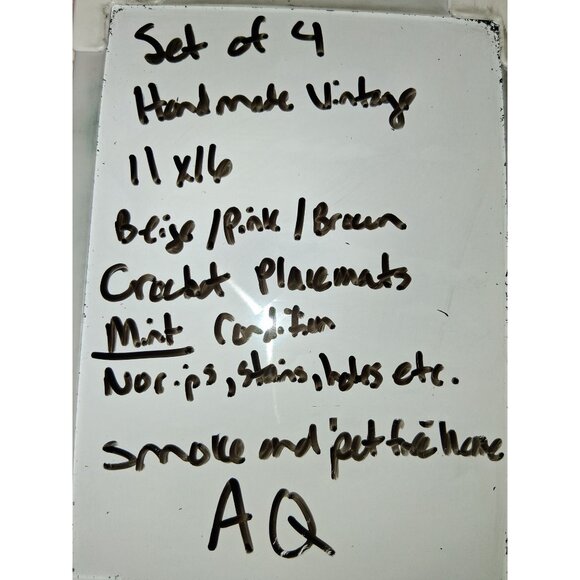 Set of 4
Handmade Vintage
11x16
Beige/Pink/Brown
Crochet Placemats
Mint Condition
No rips, stains, holes etc.
Smoke and pet free home
AQ